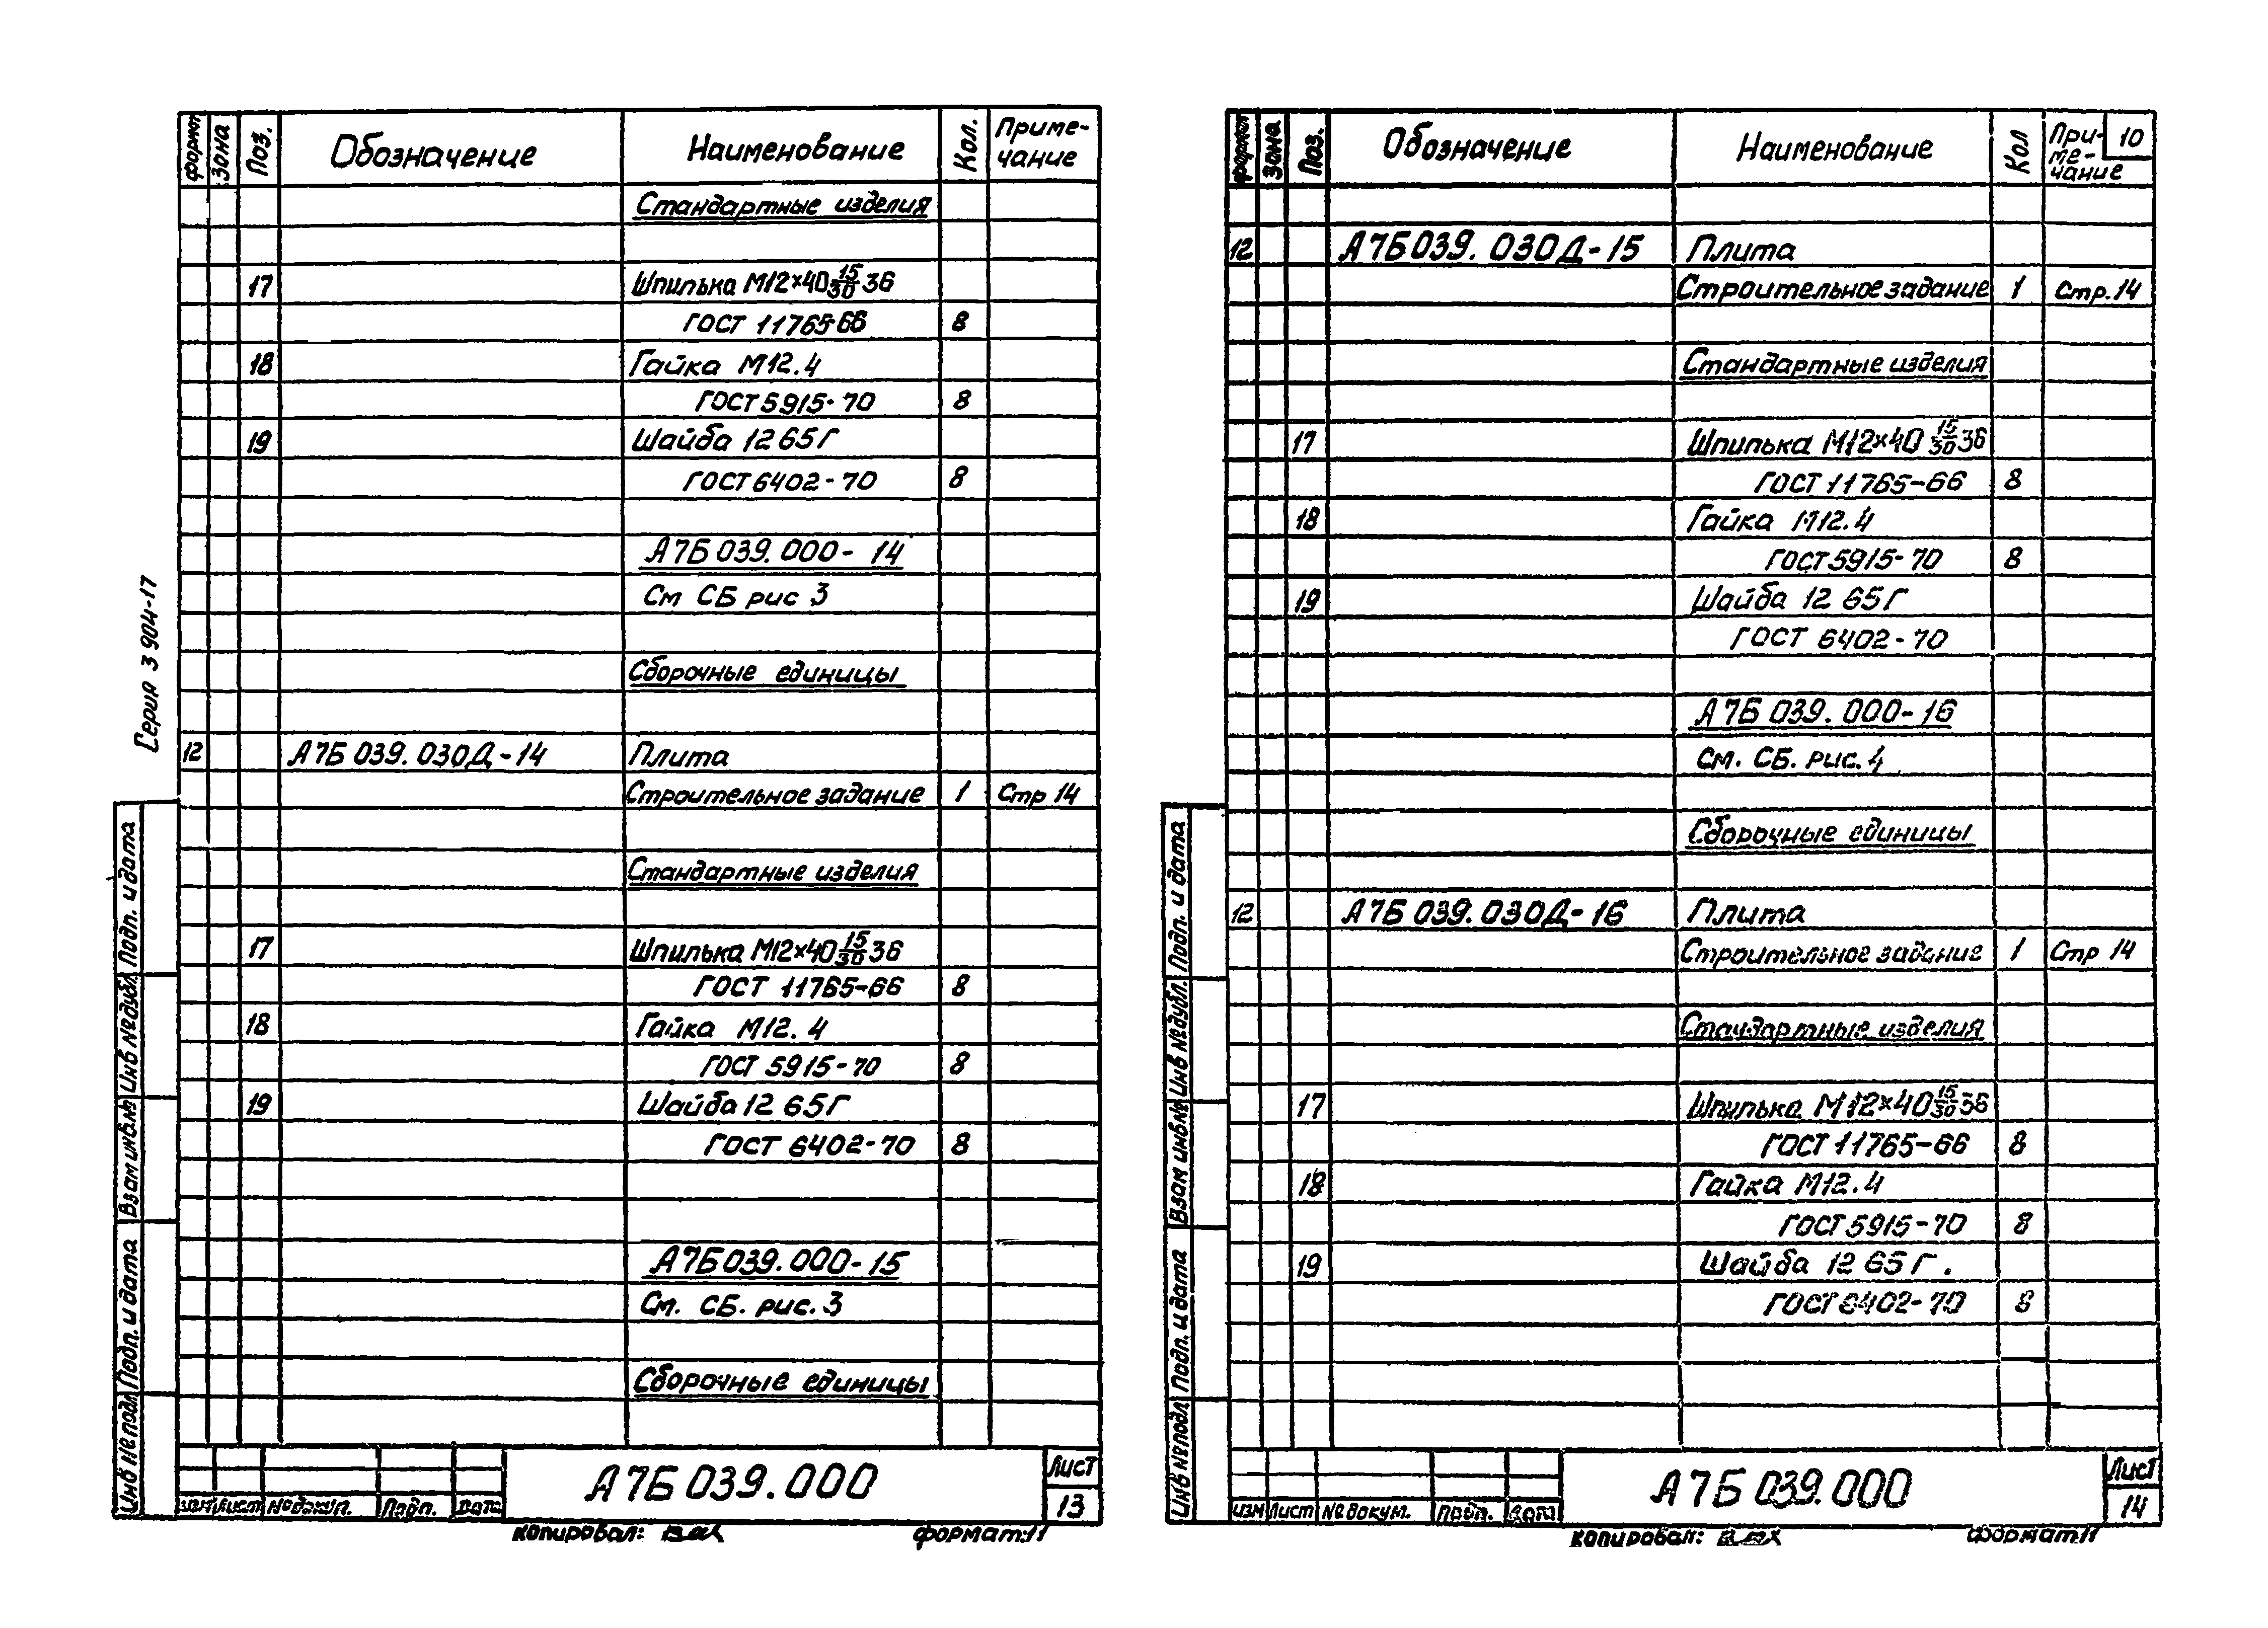 формат Зона Поз. Обозначение Наименование Кол. Приме-
чание
Стандартные изделия
17 Шпилька М12×40 15/30 36
ГОСТ 11765-66 8
18 Гайка М12.4
ГОСТ 5915-70 8
19 Шайба 12 65Г
ГОСТ 6402-70 8
А7Б 039.000-14
См СБ рис 3
Сборочные единицы
12 А7Б 039.030Д-14 Плита
Строительное задание 1 Стр 14
Стандартные изделия
17 Шпилька М12×40 15/30 36
ГОСТ 11765-66 8
18 Гайка М12.4
ГОСТ 5915-70 8
19 Шайба 12 65Г
ГОСТ 6402-70 8
А7Б 039.000-15
См. СБ. рис. 3
Сборочные единицы
Серия 3 904-17
Подп. и дата
Инв №дубл.
Взам инв.№
Подп. и дата
Инв №подл
изм лист №докум. Подп. дата
А7Б 039.000
Лист
13
копировал: формат:11
формат Зона Поз. Обозначение Наименование Кол При-
ме-
чание
10
12 А7Б 039.030Д-15 Плита
Строительное задание 1 Стр. 14
Стандартные изделия
17 Шпилька М12×40 15/30 36
ГОСТ 11765-66 8
18 Гайка М12.4
ГОСТ 5915-70 8
19 Шайба 12 65Г
ГОСТ 6402-70
А7Б 039.000-16
См. СБ. рис. 4
Сборочные единицы
12 А7Б 039.030Д-16 Плита
Строительное задание 1 Стр 14
Стандартные изделия
17 Шпилька М12×40 15/30 36
ГОСТ 11765-66 8
18 Гайка М12.4
ГОСТ 5915-70 8
19 Шайба 12 65Г.
ГОСТ 6402-70 8
Подп. и дата
Инв №дубл.
Взам инв№
Подп. и дата
Инв №подл
изм лист №докум. Подп. Дата
А7Б 039.000
Лист
14
копировал: формат11